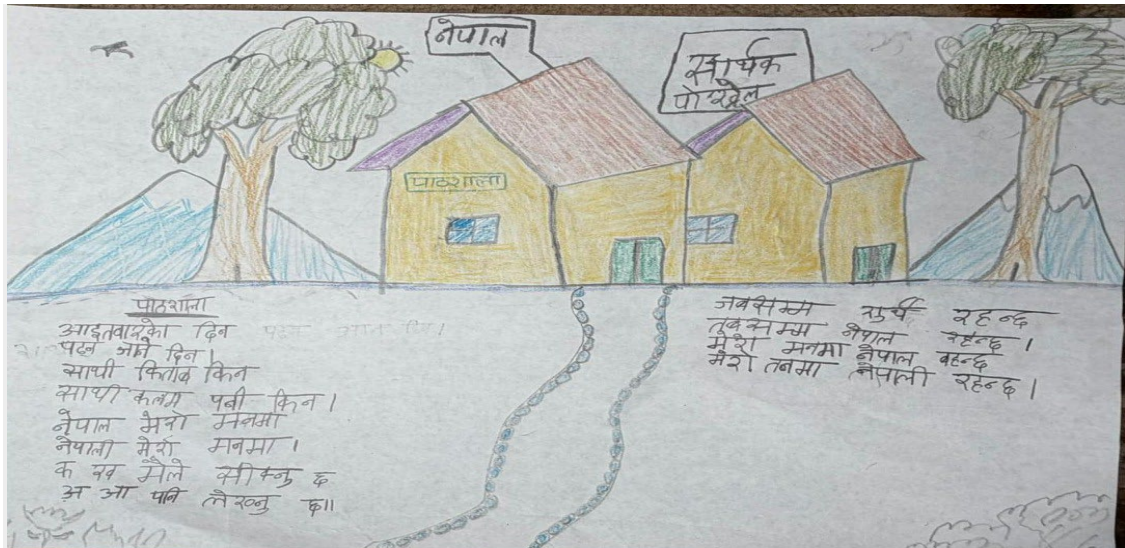 नेपाल
सार्थक
पोखरेल
पाठशाला
पाठशाला
आइतवारको दिन
पढ्न जाने दिन।
साथी किताब किन
साथी कलम पनी किन।
नेपाल मेरो मनमा
नेपाली मेरो मनमा।
क ख मैले सीक्नु छ
अ आ पनि लेख्नु छ॥
जबसम्म सुर्य रहन्छ
तबसम्म नेपाल रहन्छ।
मेरो मनमा नेपाल बहन्छ
मेरो तनमा नेपाली रहन्छ।